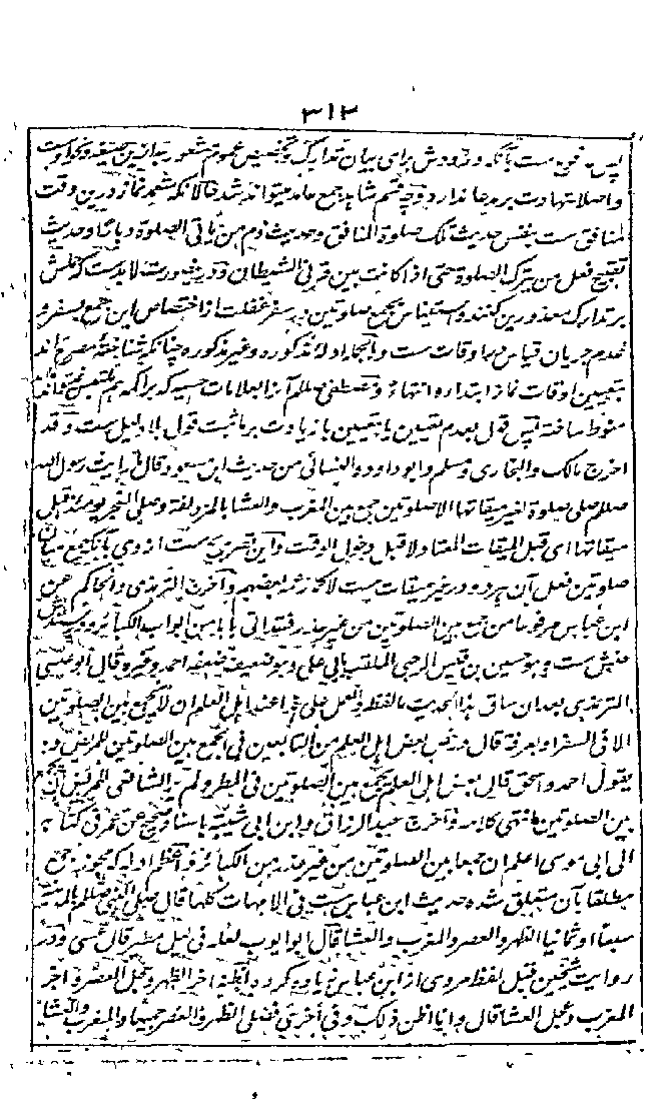 ۳۱۳
پس
واصلا شهادت بر مدعا ندارد و چه قسم شاهد جمع عامد میتواند شد حالانکه شمرد نماز درین وقت
المنافق ست بنفس حدیث تلک صلوة المنافق وحدیث ذم من یأتی الصلوة دبارا وحدیث
تقبیح فعل من یترک الصلوة حتی اذا کانت بین قرنی الشیطان
بر تدارک معذورین کنند و استیناس بجمع صلوتین در سفر غفلت از اختصاص این جمع بسفر و
عدم جریان قیاس در اوقات ست وانجا ادله مذکوره وغیر مذکوره چنانکه شناخته مصرح اند
بتعیین اوقات نماز ابتداء وانتهاء و مصطفی صلعم آنرا بعلامات حسیه که هر
منوط ساخته پس قول بعدم تعیین یا تعیین با زیادت بر ما ثبت قول بلا دلیل ست وقد
اخرج مالک والبخاری ومسلم وابو داود والنسائی من حدیث ابن مسعود قال ما رایت رسول الله
صلعم صلی صلوة لغیر میقاتها الا صلوتین جمع بین المغرب والعشا بالمزدلفة وصلی الفجر یومئذ قبل
میقاتها ای قبل المیقات المعتاد لا قبل دخول الوقت واین تصریح ست از وی بآنکه جمع میان
صلوتین فعل آن هر دو در غیر میقات ست لا کما زعمه بعضهم واخرج الترمذی والحاکم عن
ابن عباس مرفوعا من جمع بین الصلوتین من غیر عذر فقد اتی بابا من ابواب الکبائر ودر سندش
حنش ست وهو حسین بن قیس الرحبی الملقب بابی علی وهو ضعیف ضعفه احمد وغیره قال ابو عیسی
الترمذی بعد ان ساق هذا الحدیث بالفظه والعمل علی هذا عند اهل العلم ان لا یجمع بین الصلوتین
الا فی السفر او بعرفة قال ورخص بعض اهل العلم من التابعین فی الجمع بین الصلوتین للمریض وبه
یقول احمد واسحق قال بعض اهل العلم یجمع بین الصلوتین فی المطر ولم یر الشافعی للمریض ان یجمع
بین الصلوتین انتهی کلامه واخرج عبد الرزاق وابن ابی شیبة باسناد صحیح عن عمر فی کتابه
الی ابی موسی اعلم ان جمعا بین الصلوتین من غیر عذر من الکبائر واعظم ادله که مجوزه جمع
مطلقا بآن متعلق شده حدیث ابن عباس ست فی الامهات کلها قال صلی النبی صلعم بالمدینة
سبعا وثمانیا الظهر والعصر والمغرب والعشا قال ابو ایوب لعله فی لیل مطیر قال عسی ودر
روایت شیخین قبل لفظ مروی از ابن عباس زیاده کرده واظنه اخر الظهر وعجل العصر واخر
المغرب وعجل العشا قال وانا اظن ذلک وفی اخری فصلی الظهر والعصر جمیعا والمغرب والعشا